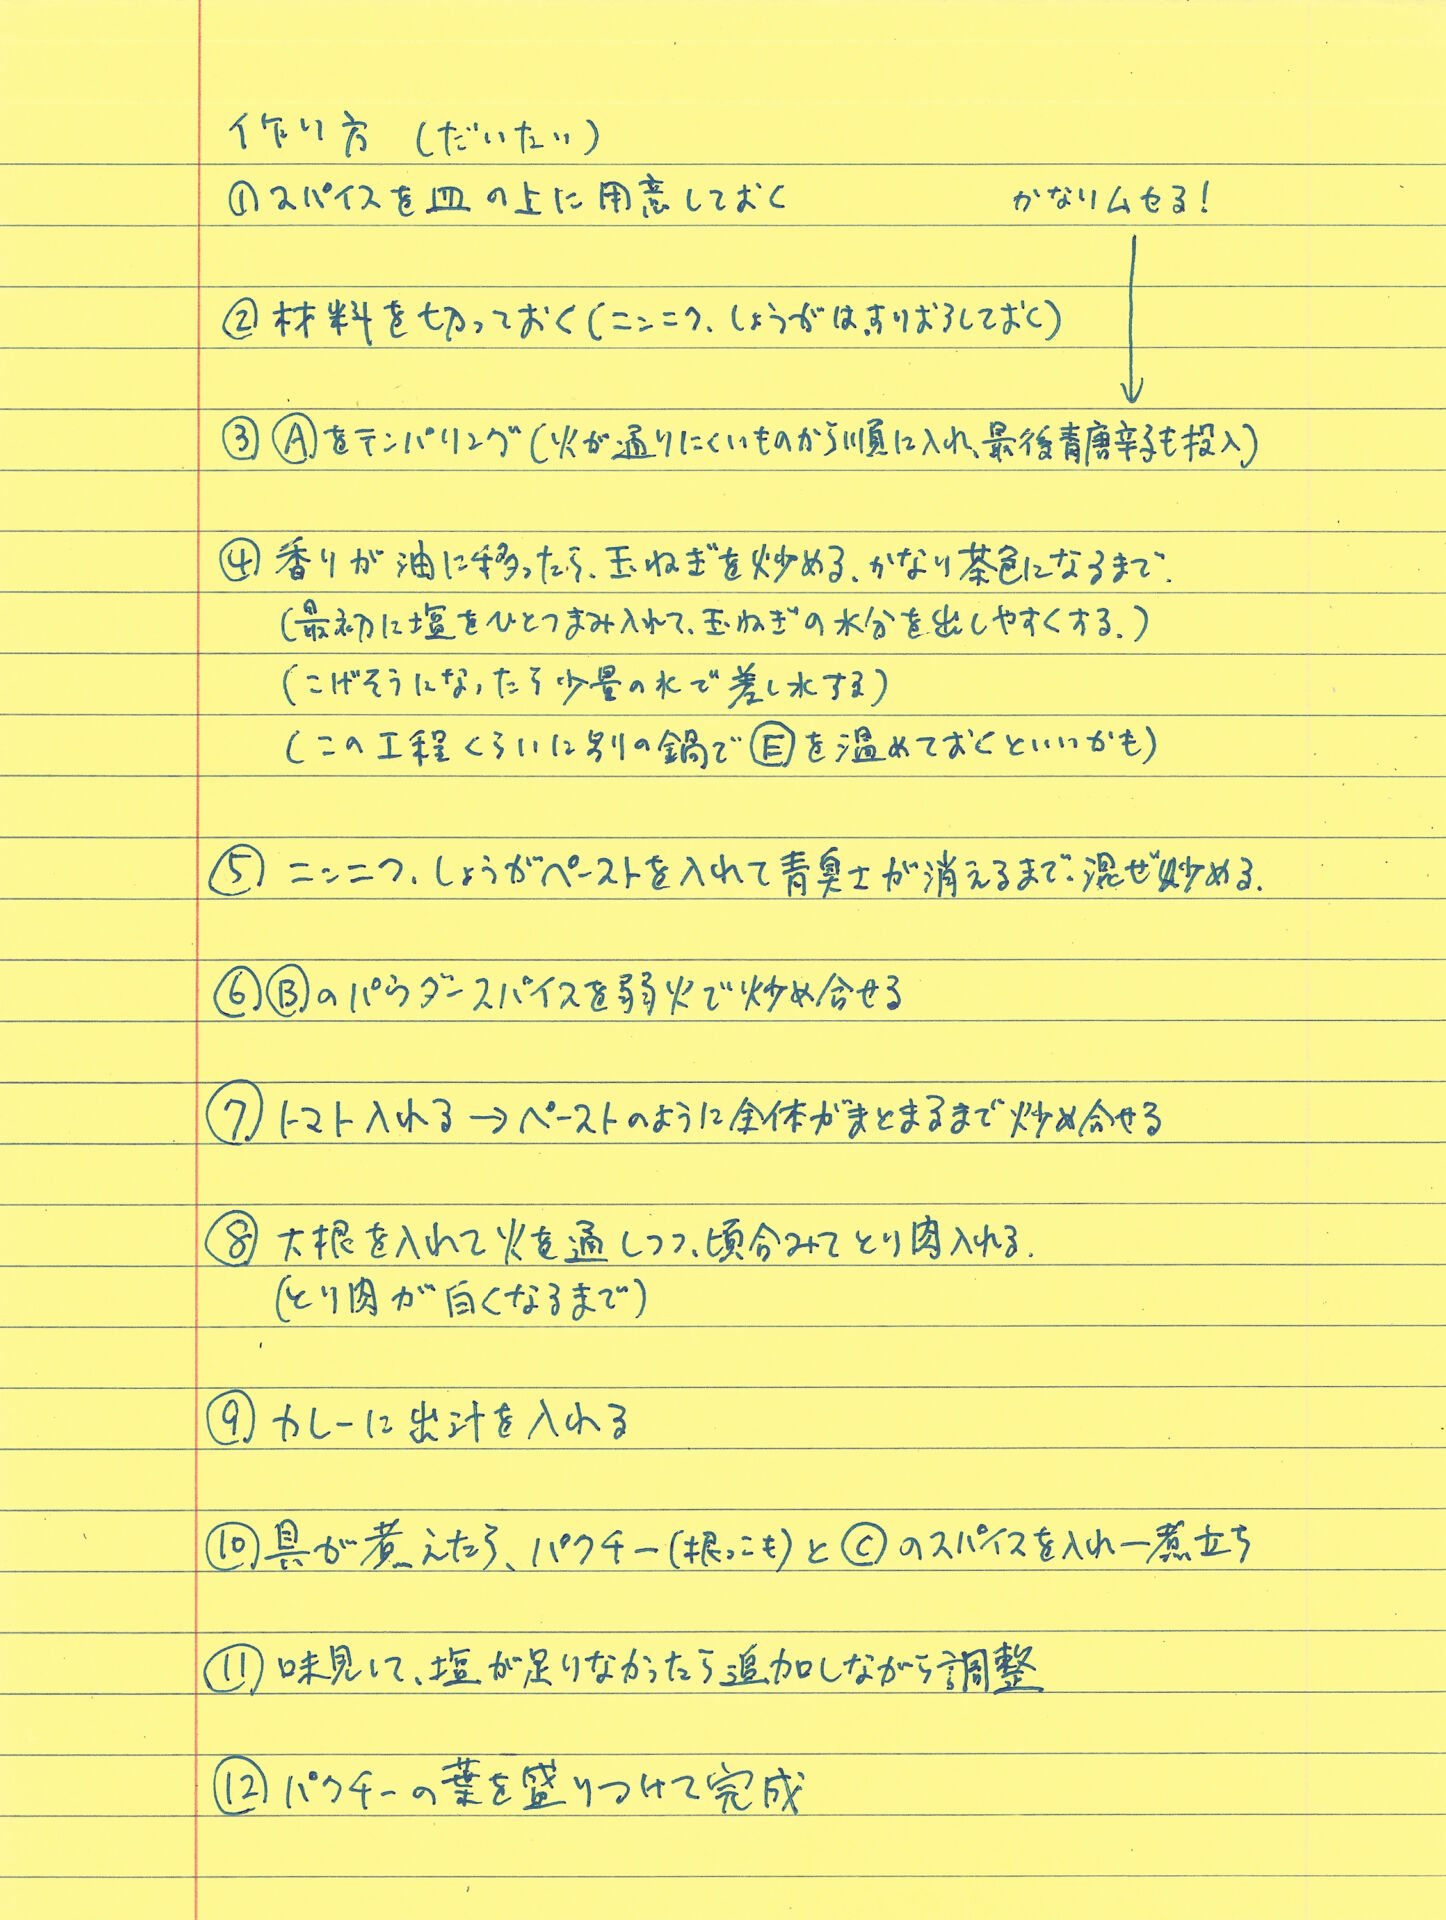 作り方 (だいたい)
①スパイスを皿の上に用意しておく
かなりムセる!
②材料を切っておく(ニンニク、しょうがは、すりおろしておく)
③Ⓐをテンパリング(火が通りにくいものから順に入れ、最後青唐辛子も投入)
④香りが油に移ったら、玉ねぎを炒める、かなり茶色になるまで.
(最初に塩をひとつまみ入れて、玉ねぎの水分を出しやすくする.)
(こげそうになったら少量の水で差し水する)
(この工程くらいに別の鍋でⒺを温めておくといいかも)
⑤ニンニク、しょうがペーストを入れて青臭さが消えるまで、混ぜ炒める.
⑥Ⓑのパウダースパイスを弱火で炒め合せる
⑦トマト入れる→ペーストのように全体がまとまるまで炒め合せる
⑧大根を入れて火を通しつつ、頃合みてとり肉入れる.
(とり肉が白くなるまで)
⑨カレーに出汁を入れる
⑩具が煮えたら、パクチー(根っこも)とⒸのスパイスを入れ一煮立ち
⑪味見して、塩が足りなかったら追加しながら調整
⑫パクチーの葉を盛りつけて完成